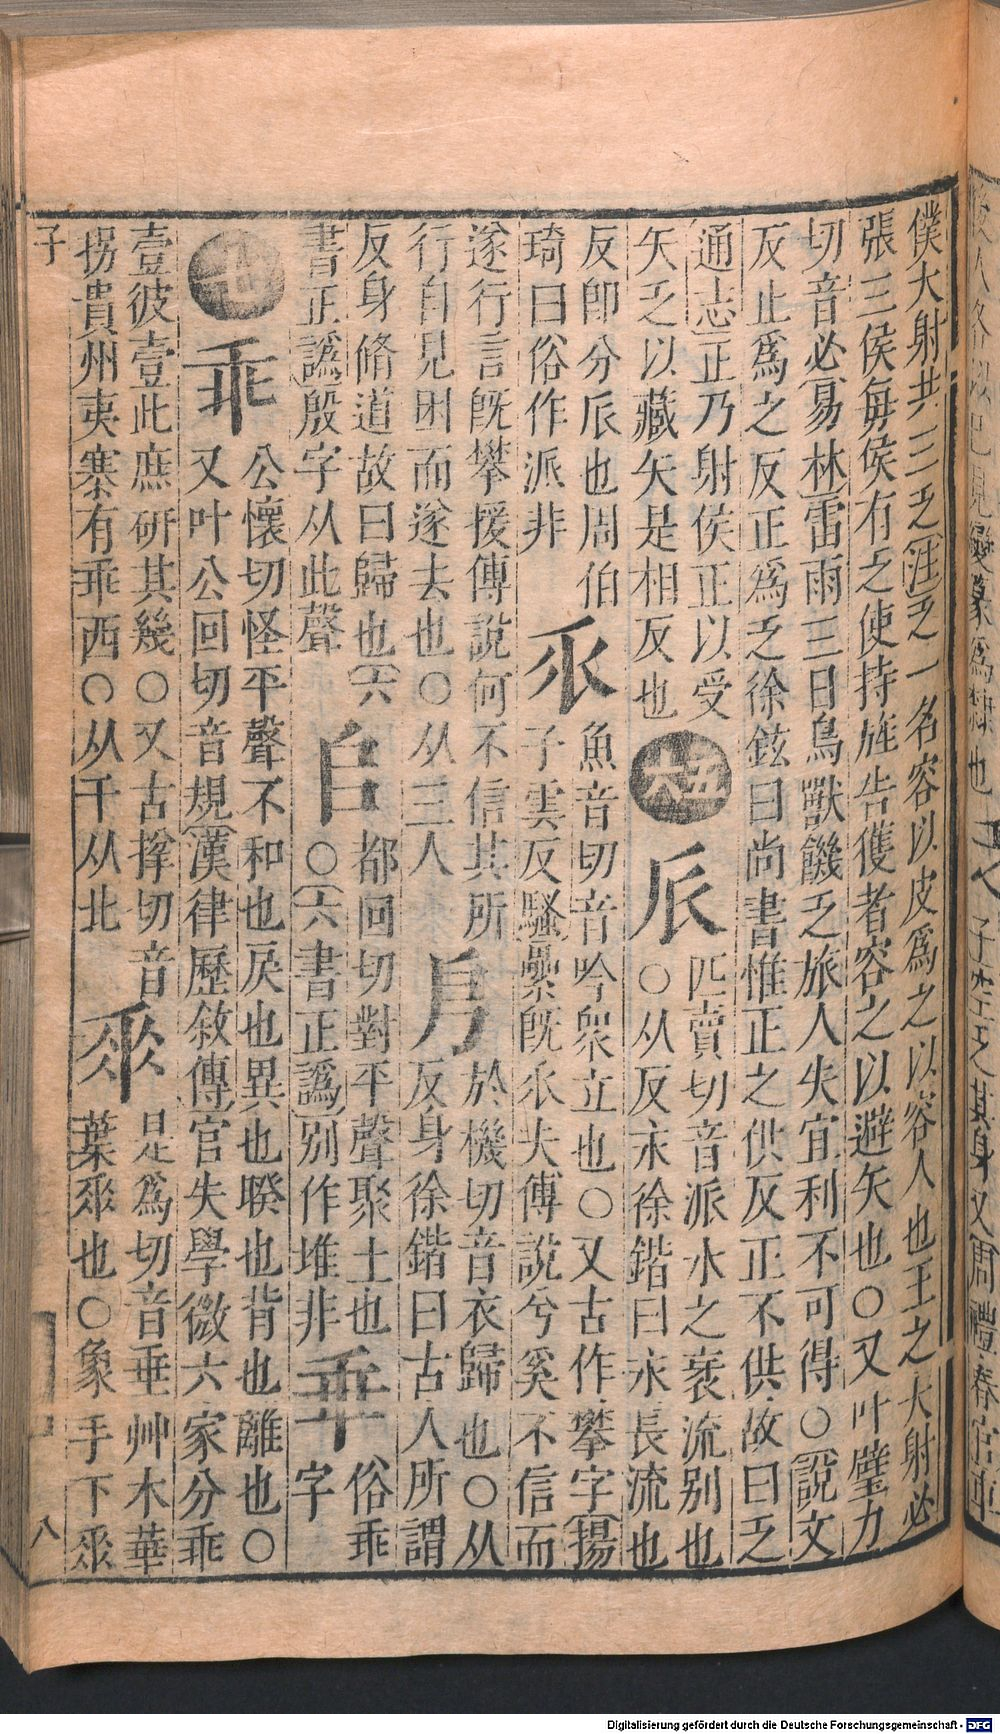 僕大射共三乏注乏一名容以皮爲之以容人也王之大射必
張三侯每侯有之使持旌告獲者容之以避矢也○又叶璧力
切音必易林雷雨三日鳥獸饑乏旅人失宜利不可得○說文
反止爲之反正爲乏徐鉉曰尚書惟正之供反正不供故曰乏
通志正乃射侯正以受
矢乏以藏矢是相反也
五
六
𠂢
匹賣切音派水之衺流別也
○从反永徐鍇曰永長流也
反卽分𠂢也周伯
琦曰俗作派非
乑
魚音切音吟衆立也○又古作攀字揚
子雲反騷纍旣乑夫傅說兮奚不信而
遂行言旣攀援傅說何不信其所
行自見困而遂去也○从三人
㐆
於機切音衣歸也○从
反身徐鍇曰古人所謂
反身脩道故曰歸也六
書正譌殷字从此聲
𠂤
都回切對平聲聚土也
○六書正譌別作堆非
乖
俗乖
字
七
乖
公懷切怪平聲不和也戾也異也睽也背也離也○
又叶公回切音規漢律歷敘傳官失學微六家分乖
壹彼壹此庶研其幾○又古撪切音
拐貴州夷寨有乖西○从千从北
𠂹
是爲切音垂艸木華
葉𠂹也○象手下𠂹
子
八
Digitalisierung gefördert durch die Deutsche Forschungsgemeinschaft - DFG